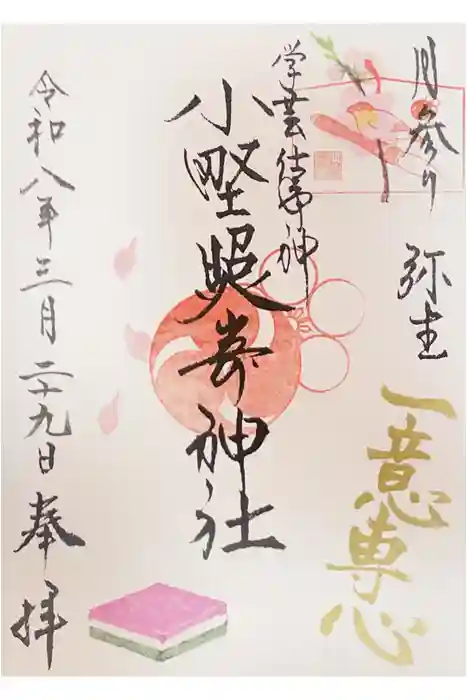 月参り 弥生
一意専心
学芸の神
小野照崎神社
令和八年三月二十九日奉拝